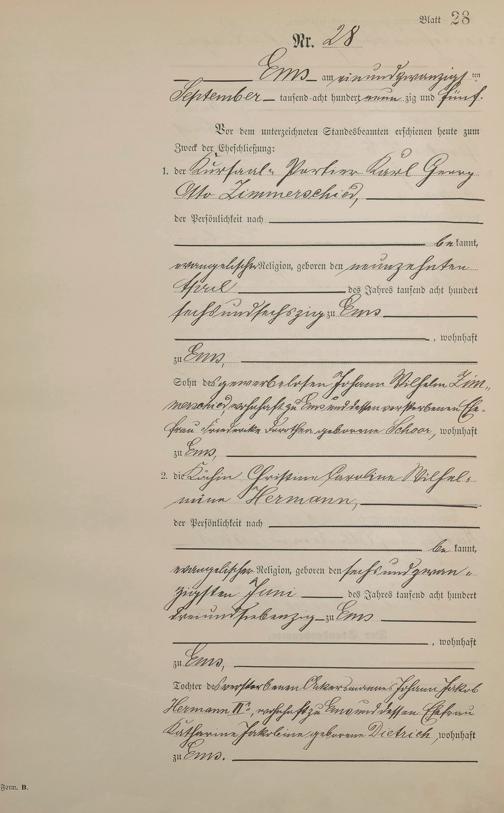 Blatt 28
Nr. 28
Ems am einundzwanzigsten
September tausend acht hundert neunzig und fünf.
Vor dem unterzeichneten Standesbeamten erschienen heute zum
Zweck der Eheschließung:
1. der Kursaal-Portier Karl Georg
Otto Zimmerschied,
der Persönlichkeit nach
bekannt,
evangelischer Religion, geboren den neunzehnten
April des Jahres tausend acht hundert
sechsundsechszig zu Ems
, wohnhaft
zu Ems,
Sohn des gewerbelosen Johann Wilhelm Zim-
merschied, wohnhaft zu Ems und dessen verstorbenen Ehe-
frau Friedericke Dorothea geborene Schoor, wohnhaft
zu Ems,
2. die Köchin Christine Caroline Wilhel-
mine Hermann,
der Persönlichkeit nach
bekannt,
evangelischer Religion, geboren den sechsundzwan-
zigsten Juni des Jahres tausend acht hundert
dreiundsiebenzig zu Ems
, wohnhaft
zu Ems,
Tochter des verstorbenen Ackersmannes Johann Jakob
Hermann IIr., wohnhaft zu Ems und dessen Ehefrau
Katharine Jakobine geborene Dietrich, wohnhaft
zu Ems.
Form. B.